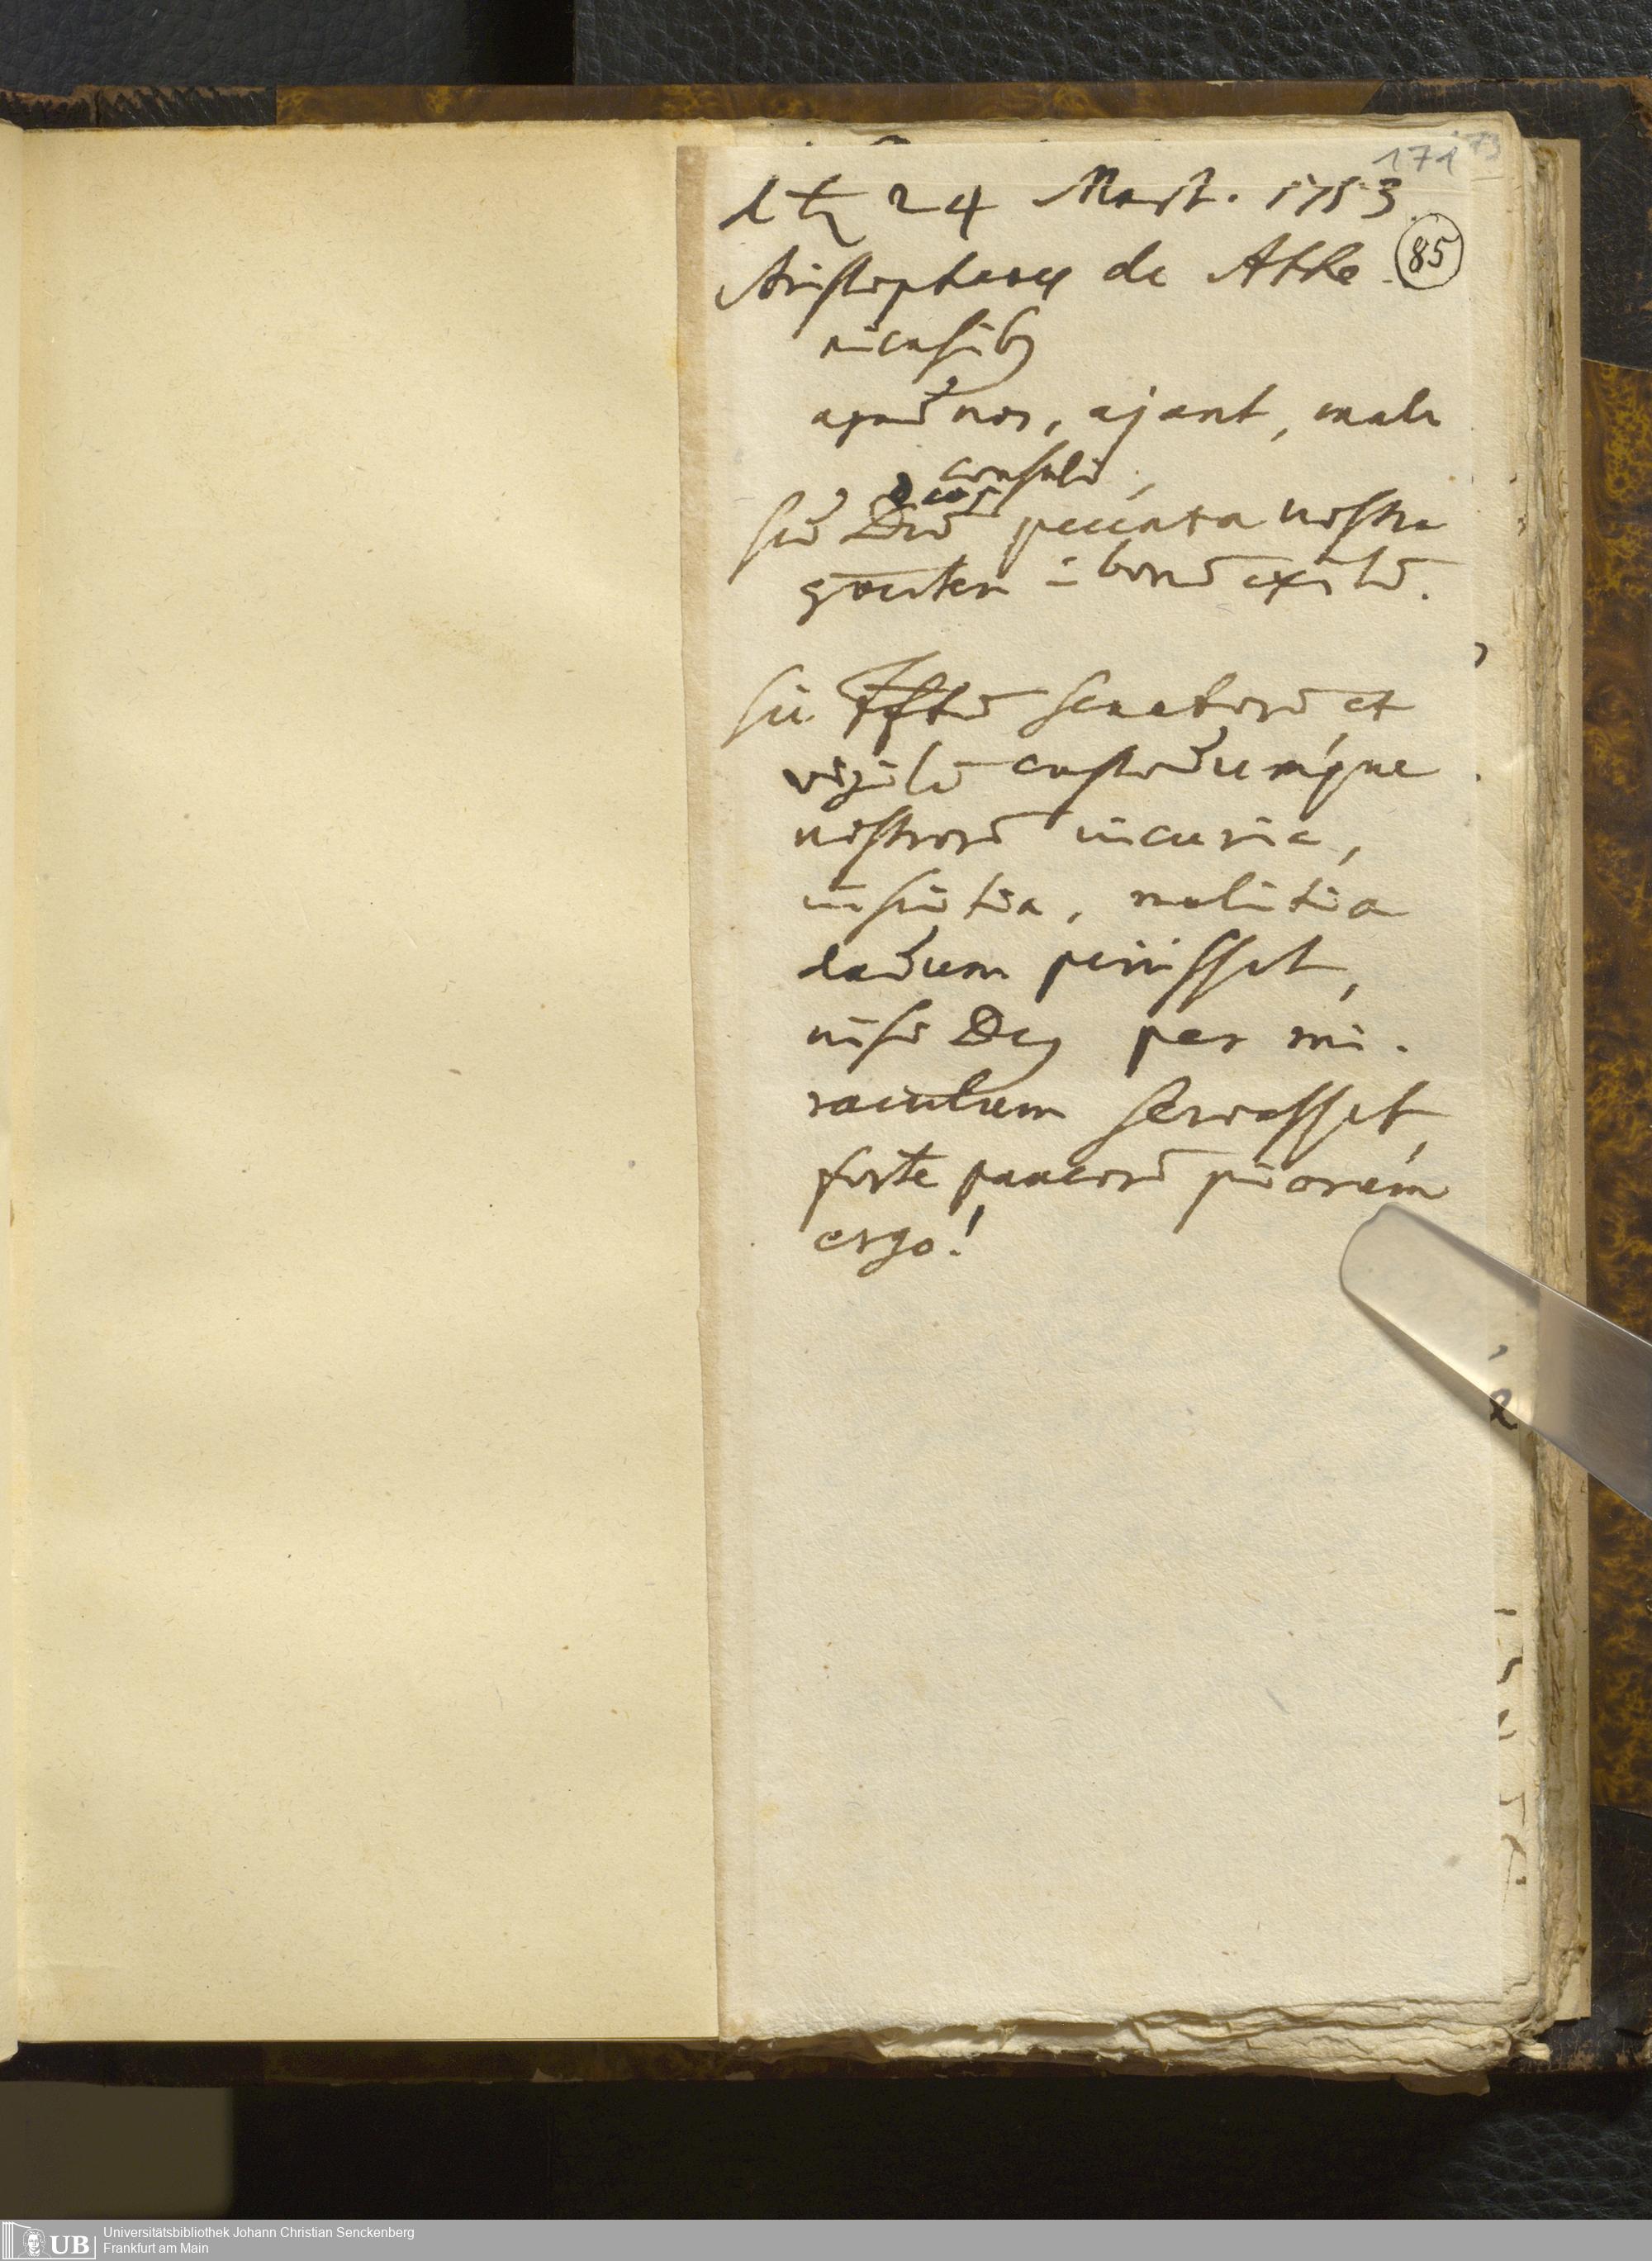 171 73
d ♄ 24 Mart. 1753
(85)
Aristophanes de Athe
niensib9
apud nos, ajunt, male
consuli,
sed Deos peccata nostra
vertere ī bonū exitū.
sic Fftū Senatorū et
vigilū custodumque
nostrorū incuria,
inscitia, malitia
dudum periisset,
nisi De9 per mi-
raculum servasset,
forte paucorū piorum
ergo!
UB
Universitätsbibliothek Johann Christian Senckenberg
Frankfurt am Main